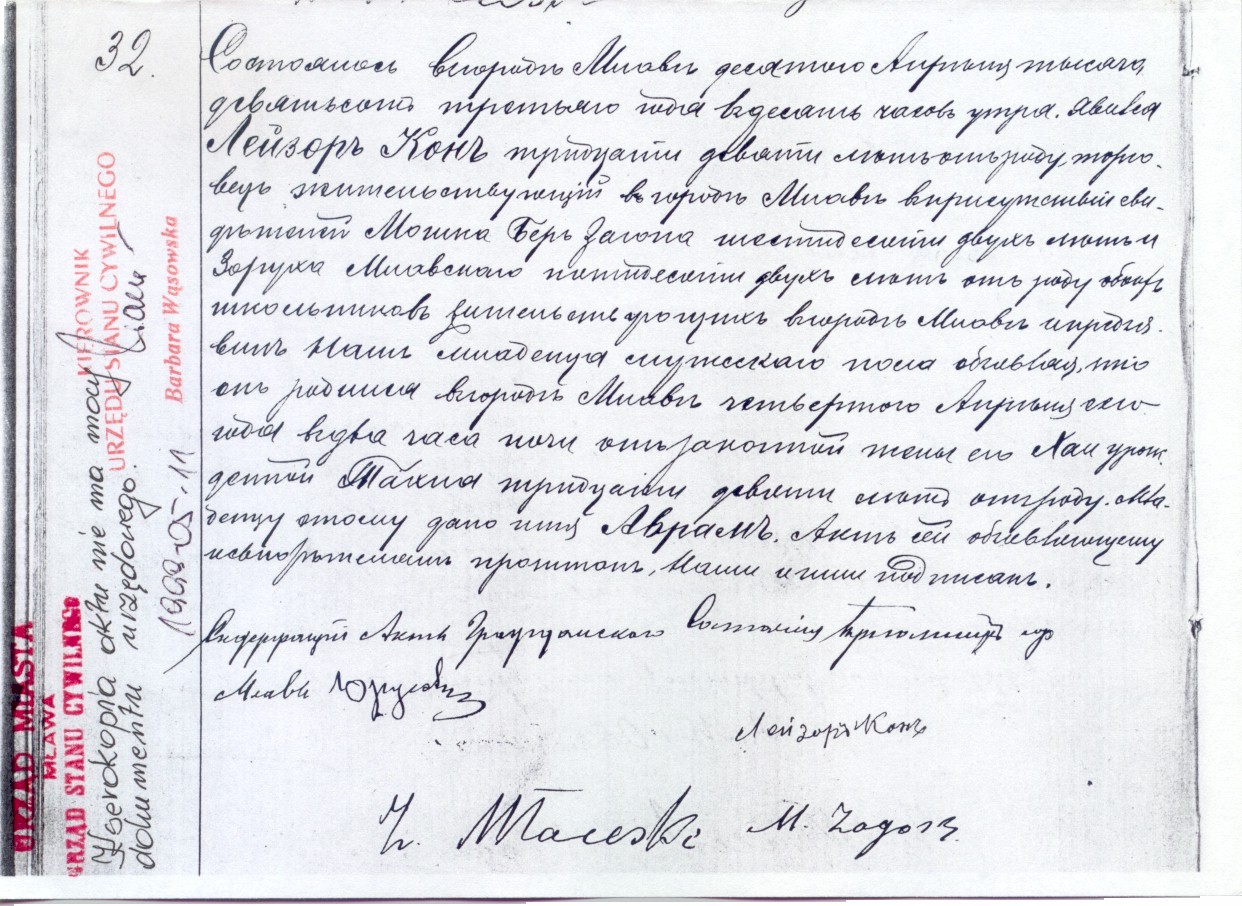 32.
Состоялось въ городѣ Млавѣ десятого Апрѣля тысяча
девятьсотъ третьяго года въ десять часовъ утра. Явился
Лейзоръ Конъ тридцати девяти лѣтъ отъ роду, торго-
вецъ жительствующій въ городѣ Млавѣ въ присутствіи сви-
дѣтелей Мошка Беръ Загона шестидесяти двухъ лѣтъ и
Млавскаго пятидесяти двухъ лѣтъ отъ роду обоихъ
школьниковъ жительствующихъ въ городѣ Млавѣ и предъя-
вилъ Намъ младенца мужескаго пола объявляя, что
онъ родился въ городѣ Млавѣ четвертого Апрѣля сего
года въ два часа ночи отъ законной жены его Хаи урож-
денной тридцати девяти лѣтъ отъ роду. Мла-
денцу этому дано имя Аврамъ. Актъ сей объявляющему
и свидѣтелямъ прочтенъ, Нами и ими подписанъ.
Акты Гражданскаго Состоянія
Млавы
Лейзоръ Конъ
M.
URZĄD MIASTA
MŁAWA
URZĄD STANU CYWILNEGO
Kserokopia aktu nie ma mocy
dokumentu urzędowego.
KIEROWNIK
URZĘDU STANU CYWILNEGO
Barbara Wąsowska